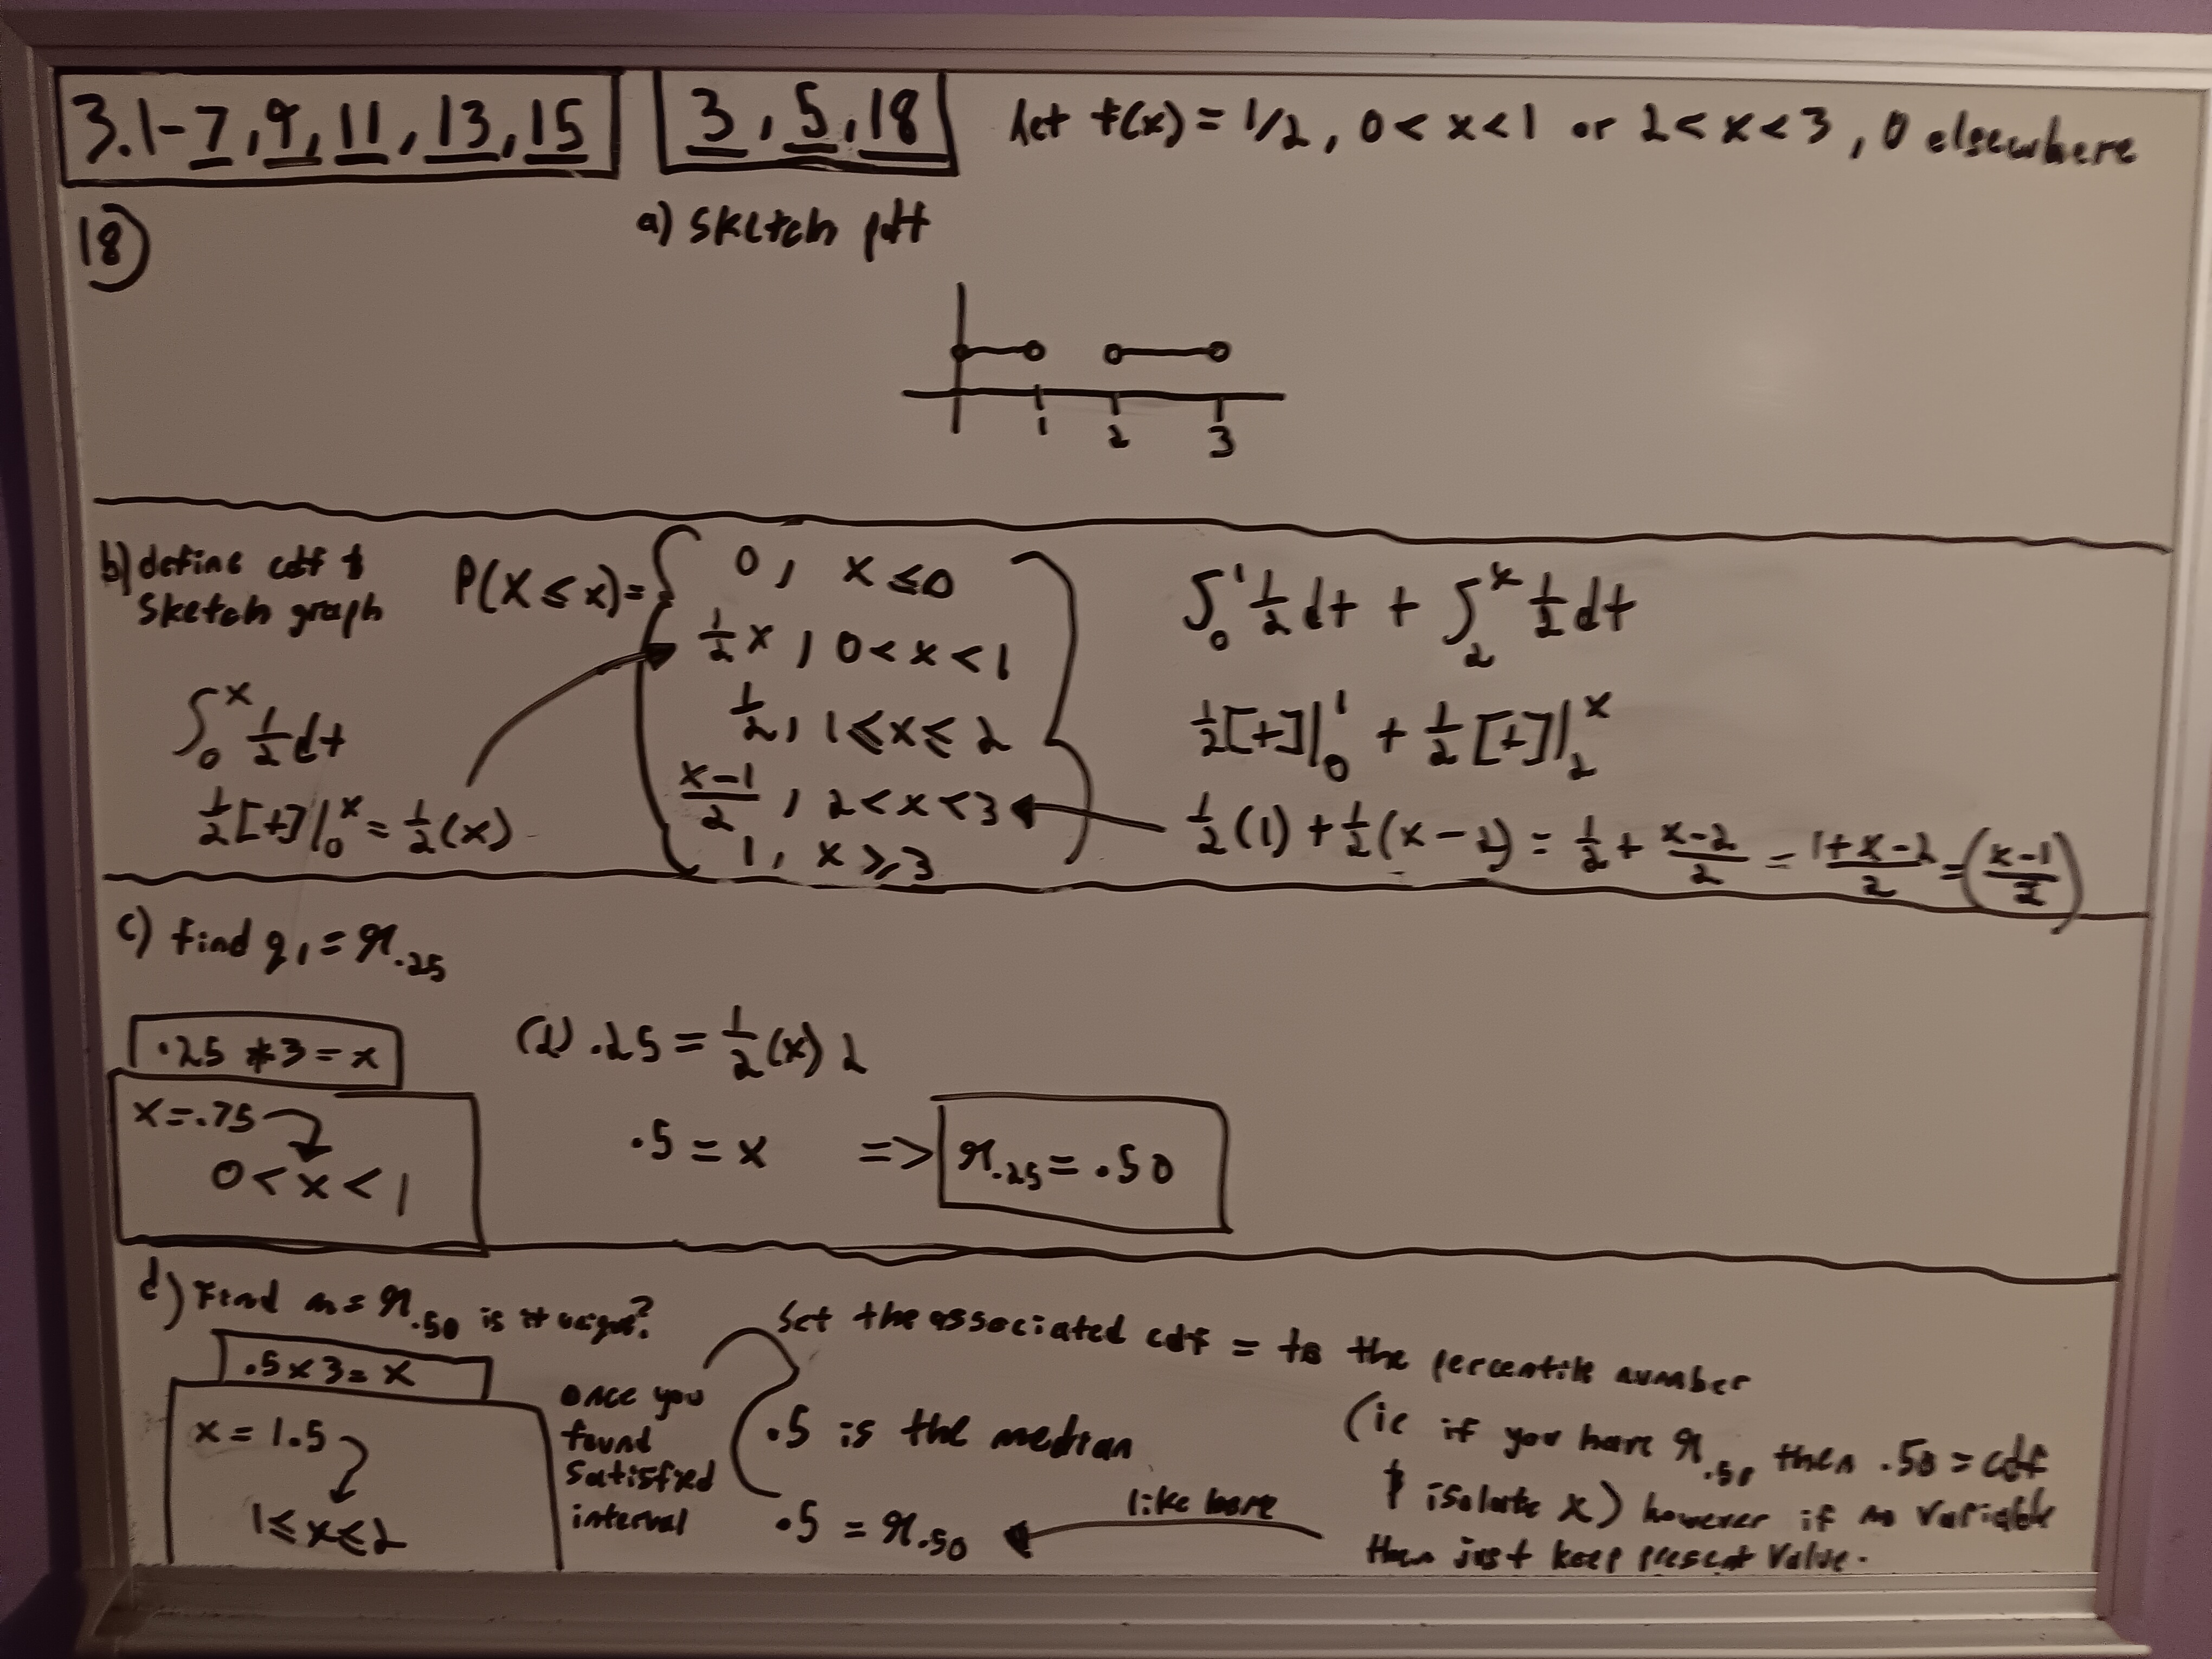 3.1-7,9,11,13,15
3,5,18
let f(x) = 1/2, 0 < x < 1 or 2 < x < 3, 0 elsewhere
18)
a) Sketch pdf
1 2 3
b) define cdf &
Sketch graph
P(X ≤ x) =
0, x ≤ 0
1/2 x, 0 < x < 1
1/2, 1 ≤ x ≤ 2
x-1/2, 2 < x < 3
1, x ≥ 3
∫₀ˣ 1/2 dt
1/2 [t]|₀ˣ = 1/2 (x)
∫₀¹ 1/2 dt + ∫₂ˣ 1/2 dt
1/2 [t]|₀¹ + 1/2 [t]|₂ˣ
1/2 (1) + 1/2 (x - 2) = 1/2 + x-2/2 = 1+x-2/2 = (x-1/2)
c) find q₁ = π.25
.25 * 3 = x
x = .75
0 < x < 1
(2) .25 = 1/2 (x) 2
.5 = x => π.25 = .50
d) Find m = π.50 is it unique?
.5 x 3 = x
x = 1.5
1 ≤ x ≤ 2
once you
found
satisfied
interval
Set the associated cdf = to the percentile number
.5 is the median
.5 = π.50
like here
(ie if you have π.50 then .50 = cdf
& isolate x) however if no variable
then just keep present value.